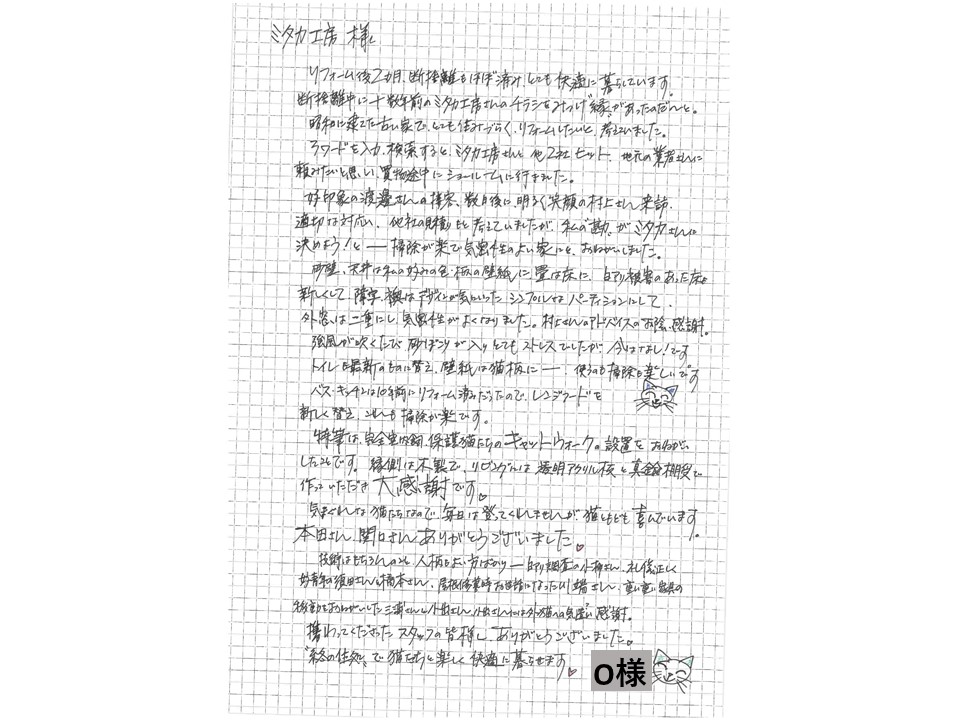 ミタカ工房 様
リフォーム後2カ月、断捨離もほぼ済み、とても快適に暮らしています。
断捨離中に十数年前のミタカ工房さんのチラシをみつけ"縁"があったのだなと。
昭和に建てた古い家で、とても住みづらく、リフォームしたいと、考えていました。
3ワードを入力、検索すると、ミタカ工房さんと他2社ヒット、地元の業者さんに
頼みたいと思い、買物途中にショールームに行きました。
好印象の渡邊さんの接客、数日後に、明るく笑顔の村上さん来訪、
適切な対応、他社の見積りもと考えていましたが、私の"勘"がミタカさんに
決めよう!と ― 掃除が楽で気密性のよい家にと、おねがいしました。
砂壁、天井は私の好みの色・柄の壁紙に、畳は床に、白アリ被害のあった床も
新しくして、障子、襖はデザインが気にいったシンプルなパーティションにして、
外窓は二重にし、気密性がよくなりました。村上さんのアドバイスのお陰、感謝。
強風が吹くたび砂ぼこりが入りとてもストレスでしたが、今はなし!です
トイレも最新のものに替え、壁紙は猫柄に ― 、使うのも掃除も楽しいです
バス・キッチンは10年前にリフォーム済みだったので、レンジフードを
新しく替え、これも掃除が楽です。
特筆は、完全室内飼、保護猫たちのキャットウォーク。設置をおねがい
したことです。縁側は木製で、リビングには透明アクリル板と真鍮棚受で
作っていただき 大感謝です。
気まぐれな猫たちなので、毎日は登ってくれませんが、猫ともども喜んでいます。
本田さん、関口さん ありがとうございました。
技術はもちろんのこと、人柄もよい方ばかり ― 白アリ調査の小柳さん、礼儀正しく
好青年の須田さんと橋本さん、屋根修業時お世話になった川端さん、重い重い家具の
移動をおねがいした三浦さんと小田さん、小田さんには外猫への気遣い感謝。
携わってくださったスタッフの皆様、ありがとうございました。
"終の住処"で猫たちと楽しく快適に暮らせます。
O様